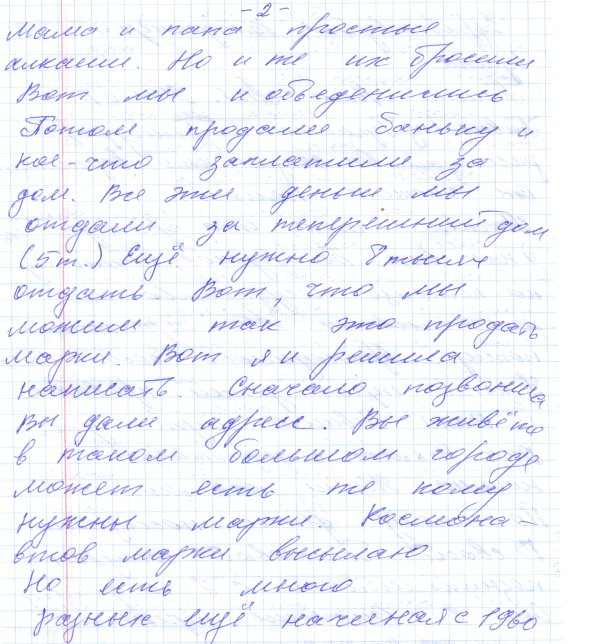 -2-
Мама и папа простые
алкаши. Но и те их бросили
Вот мы и объеденились
Потом продали баньку и
кое-что заплатили за
дом. Все эти деньги мы
отдали за теперешний дом
(5т.) Ещё нужно 8 тысяч
отдать. Вот, что мы
можем так это продать
марки. Вот я и решила
написать. Сначало позвонила
Вы дали адресс. Вы живёте
в таком большом городе
может есть те кому
нужны марки. Космона-
втов марки высылаю
Но есть много
разных ещё начиная с 1960